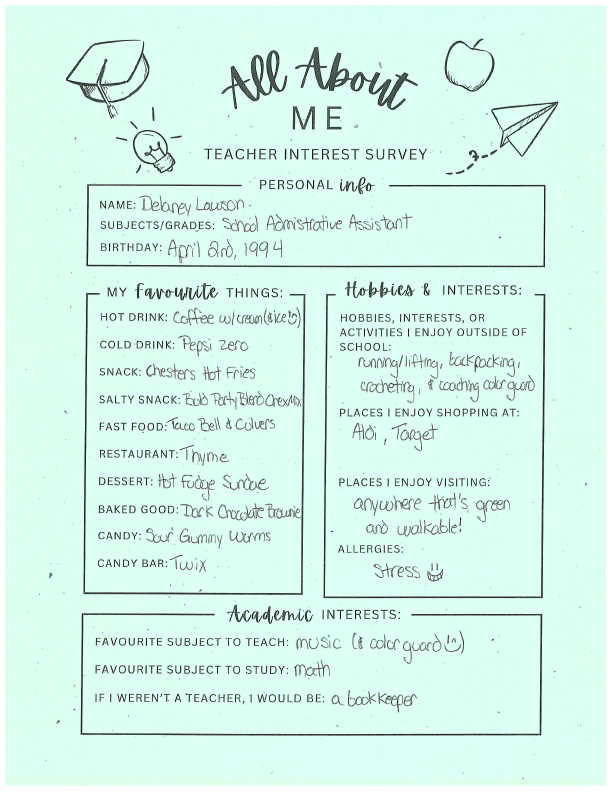 All About
ME
TEACHER INTEREST SURVEY
PERSONAL info
NAME: Delaney Lawson
SUBJECTS/GRADES: School Admistrative Assistant
BIRTHDAY: April 2rd, 1994
MY Favourite THINGS:
HOT DRINK: Coffee w/cream (& ice)
COLD DRINK: Pepsi zero
SNACK: Chesters Hot Fries
SALTY SNACK: Bold Party Blend Chex Mix
FAST FOOD: Taco Bell & Culvers
RESTAURANT: Thyme
DESSERT: Hot Fudge Sundae
BAKED GOOD: Dark Chocolate Brownie
CANDY: Sour Gummy Worms
CANDY BAR: Twix
Hobbies & INTERESTS:
HOBBIES, INTERESTS, OR
ACTIVITIES I ENJOY OUTSIDE OF
SCHOOL:
running/lifting, backpacking,
crocheting, & coaching color guard
PLACES I ENJOY SHOPPING AT:
Aldi, Target
PLACES I ENJOY VISITING:
anywhere that's green
and walkable!
ALLERGIES:
Stress
Academic INTERESTS:
FAVOURITE SUBJECT TO TEACH: music (& color guard)
FAVOURITE SUBJECT TO STUDY: math
IF I WEREN'T A TEACHER, I WOULD BE: a bookkeeper